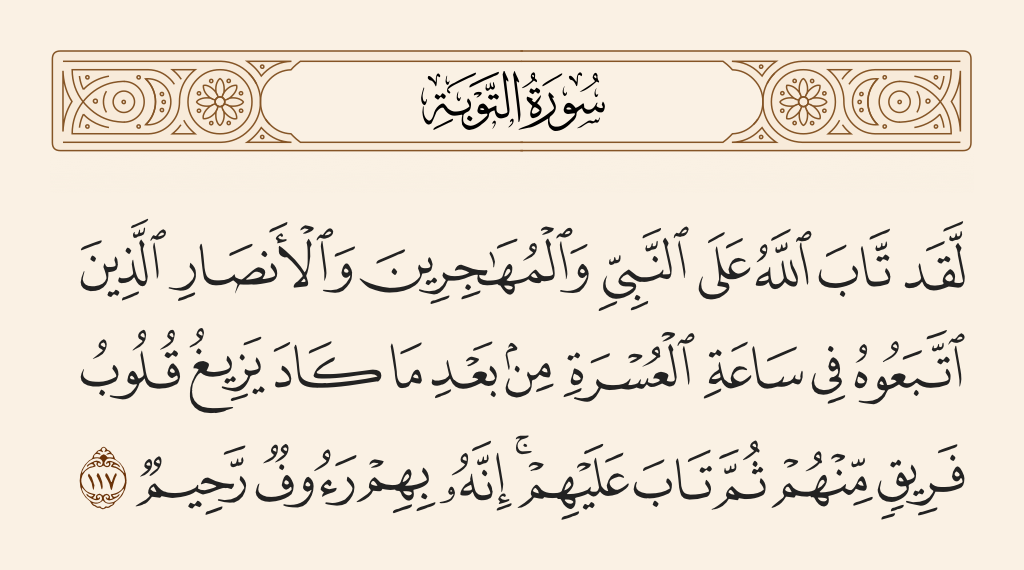 سُورَةُ التَّوْبَةِ
لَّقَد تَّابَ ٱللَّهُ عَلَى ٱلنَّبِىِّ وَٱلْمُهَٰجِرِينَ وَٱلْأَنصَارِ ٱلَّذِينَ
ٱتَّبَعُوهُ فِى سَاعَةِ ٱلْعُسْرَةِ مِنۢ بَعْدِ مَا كَادَ يَزِيغُ قُلُوبُ
فَرِيقٍ مِّنْهُمْ ثُمَّ تَابَ عَلَيْهِمْ ۚ إِنَّهُۥ بِهِمْ رَءُوفٌ رَّحِيمٌ ١١٧